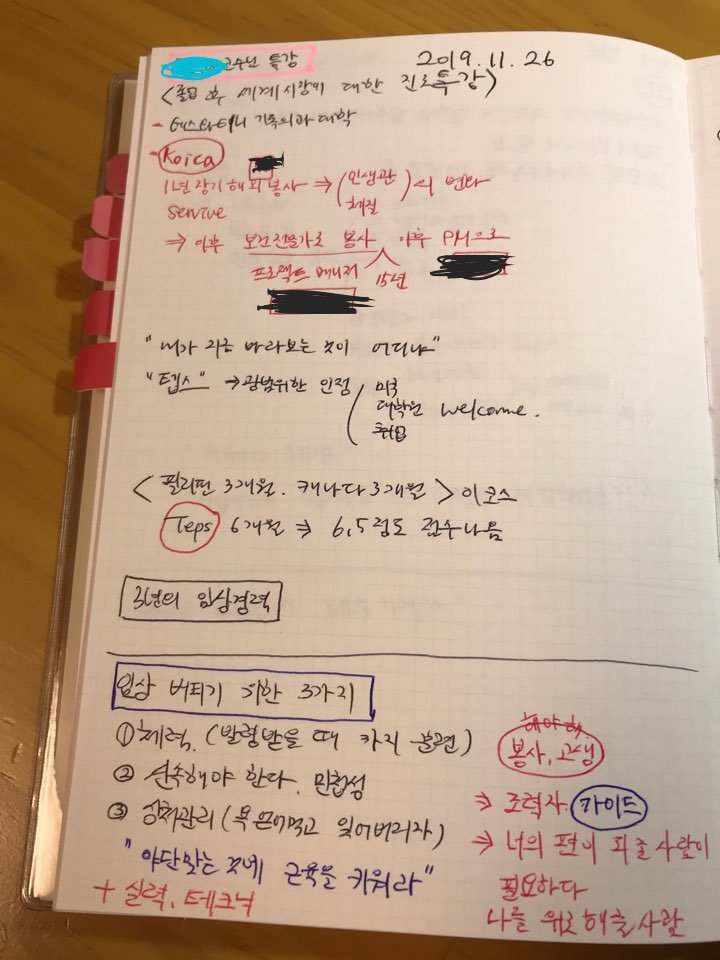 교수님 특강
2019.11.26
<졸업 후 세계시장에 대한 진로특강>
- 가톨릭의과대학
- Koica
1년 장기해외봉사 ⇒ (인생관 체질)의 변화
service
⇒ 이후 보건전문가로 봉사 이후 PM으로
프로젝트 매니저 15년
"내가 지금 바라보는 것이 어디냐"
"텝스" → 광범위한 인정
미국
대학원 welcome.
취업
<필리핀 3개월. 캐나다 3개월> 이코스
Teps 6개월 ⇒ 6.5정도 점수나옴
3년의 임상경력
임상 버티기 위한 3가지
① 체력. (발령받을 때 까지 훈련)
② 신속해야 한다. 민첩성
③ 상처관리 (욕 얻어먹고 잊어버리자)
"야단맞는 것에 근육을 키워라"
+ 실력, 테크닉
해야 해
봉사, 고생
⇒ 조력자 가이드
⇒ 너의 편이 되줄 사람이
필요하다
나를 위로해줄 사람